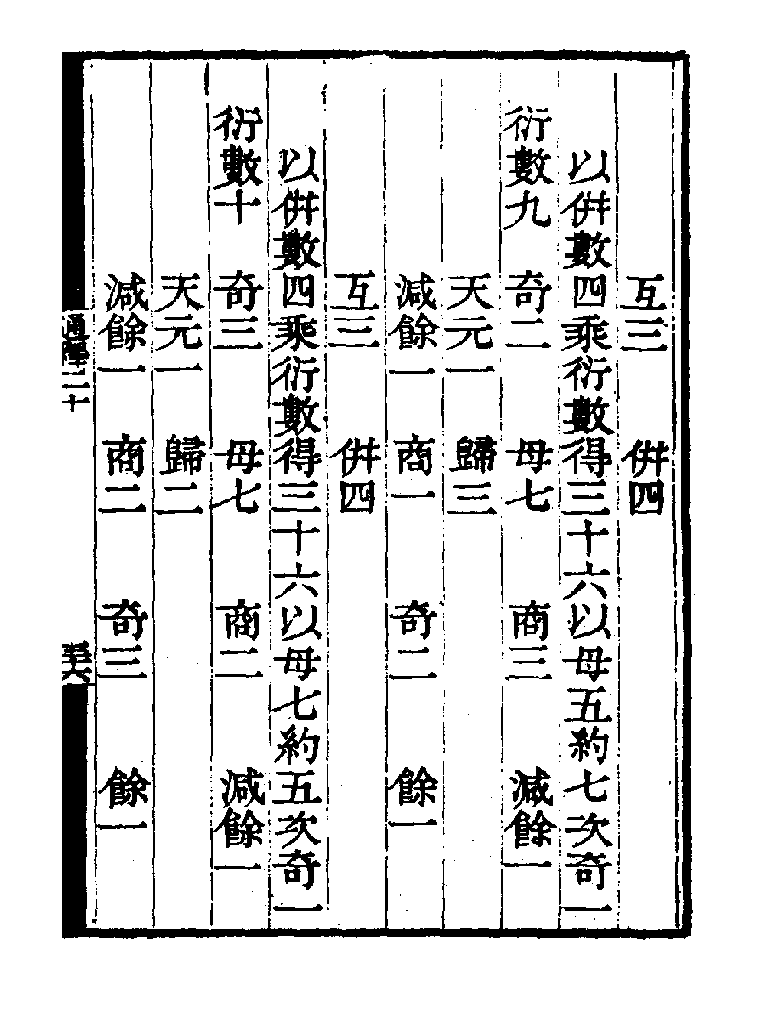 互三　併四
以併數四乘衍數得三十六以母五約七次奇一
衍數九　奇二　母七　商三　減餘一
天元一　歸三
減餘一　商一　奇二　餘一
互三　併四
以併數四乘衍數得三十六以母七約五次奇一
衍數十　奇三　母七　商二　減餘一
天元一　歸二
減餘一　商二　奇三　餘一